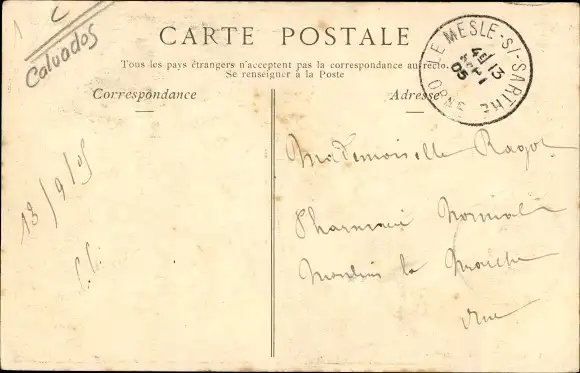 C
Calvados
CARTE POSTALE
Tous les pays étrangers n'acceptent pas la correspondance au recto.
Se renseigner à la Poste
Correspondance
Adresse
LE MESLE-S/-SARTHE
4E/13
05
ORNE
13/9/05
Mademoiselle Ragot
Pharmacie
Moulins la Marche
Orne